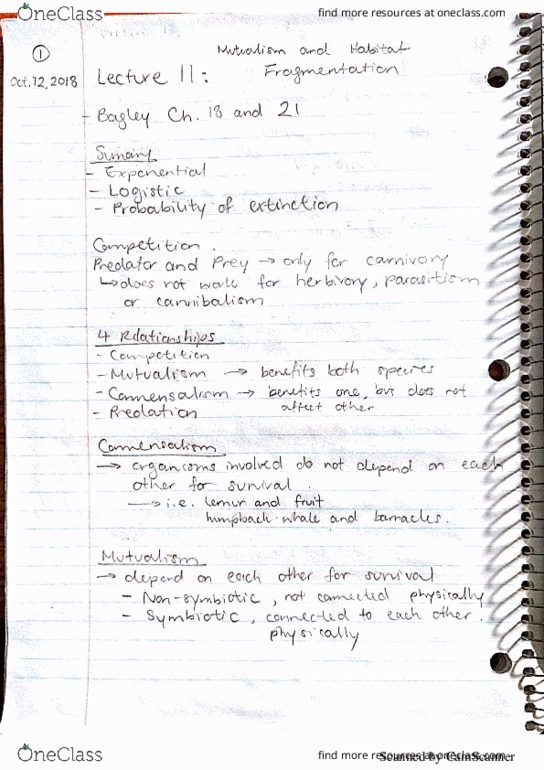 OneClass
find more resources at oneclass.com
①
Mutualism and Habitat
Oct.12,2018
Lecture 11:
Fragmentation
- Bagley Ch. 18 and 21
Sumary
- Exponential
- Logistic
- Probability of extinction
Competition.
Predator and Prey → only for carnivory
↳ does not work for herbivory, parasitism
or cannibalism
4 Relationships
- Competition
- Mutualism → benefits both species
- Commensalism → benefits one, but does not
affect other
- Predation
Commensalism
→ organisms involved do not depend on each
other for survival.
→ i.e. lemur and fruit
humpback whale and barnacles.
Mutualism
→ depend on each other for survival
- Non-symbiotic, not connected physically
- Symbiotic, connected to each other.
physically
OneClass
find more resources at oneclass.com
Scanned by CamScanner